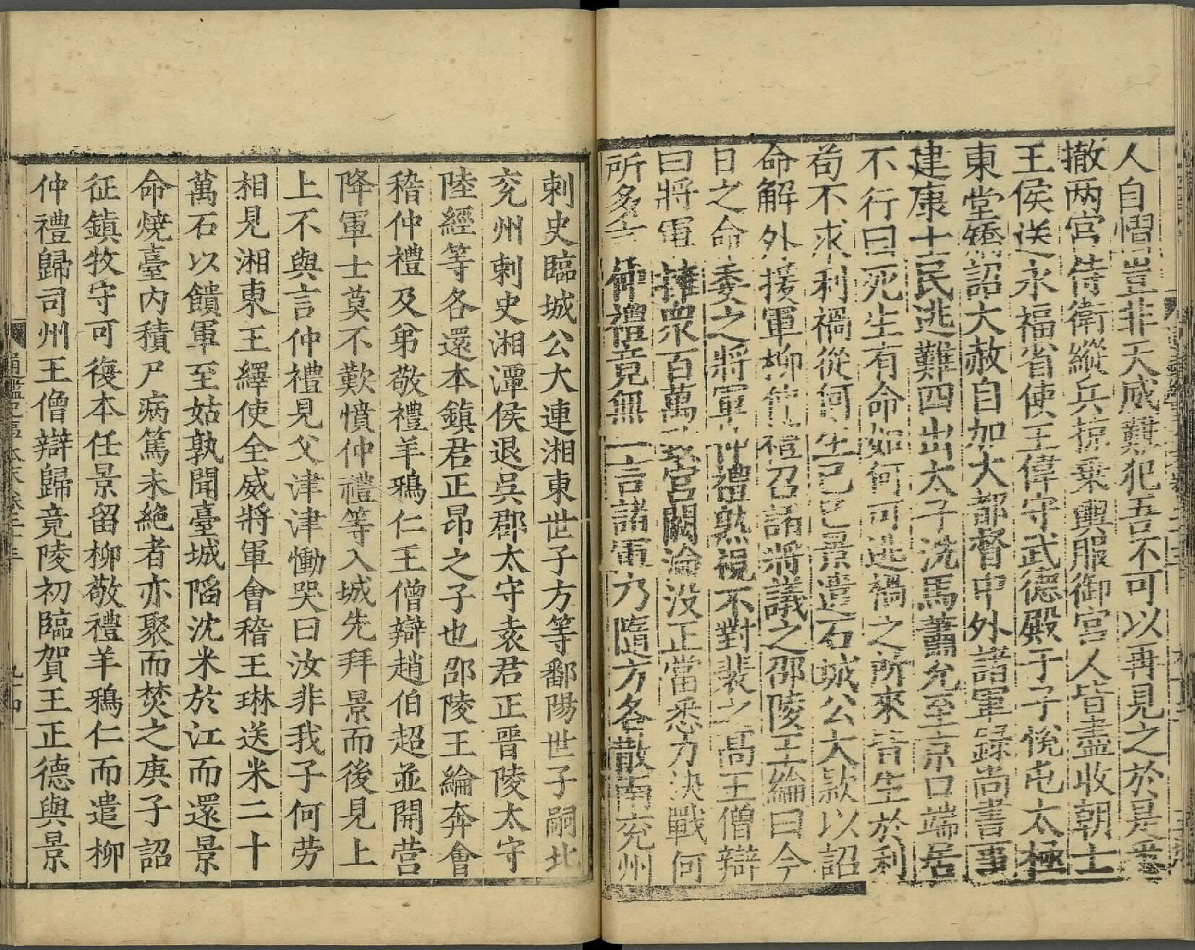 人自慴豈非天威難犯吾不可以再見之於是悉
撤两宫侍衛縱兵掠乗輿服御宫人皆盡收朝士
王侯送永福省使王偉守武德殿于子恱屯太極
東堂矯詔大赦自加大都督中外諸軍録尚書事
建康士民逃難四出太子洗馬蕭允至京口端居
不行曰死生有命如何可逃禍之所來皆生於利
苟不求利禍從何生己巳景遣石城公大款以詔
命解外援軍柳仲禮召諸將議之邵陵王綸曰今
日之命委之將軍仲禮熟視不對裴之高王僧辯
曰將軍擁衆百萬致宫闕淪没正當悉力決戰何
所多言仲禮竟無一言諸軍乃隨方各散南兖州
刺史臨城公大連湘東世子方等鄱陽世子嗣北
兖州刺史湘潭侯退吳郡太守袁君正晉陵太守
陸經等各還本鎮君正昂之子也邵陵王綸奔會
稽仲禮及弟敬禮羊鴉仁王僧辯趙伯超並開营
降軍士莫不歎憤仲禮等入城先拜景而後見上
上不與言仲禮見父津津慟哭曰汝非我子何劳
相見湘東王繹使全威將軍會稽王琳送米二十
萬石以饋軍至姑孰聞臺城陷沈米於江而還景
命燒臺内積尸病篤未絶者亦聚而焚之庚子詔
征鎮牧守可復本任景留柳敬禮羊鴉仁而遣柳
仲禮歸司州王僧辯歸竟陵初臨賀王正德與景
通鑑紀事本末卷二十三
九十四